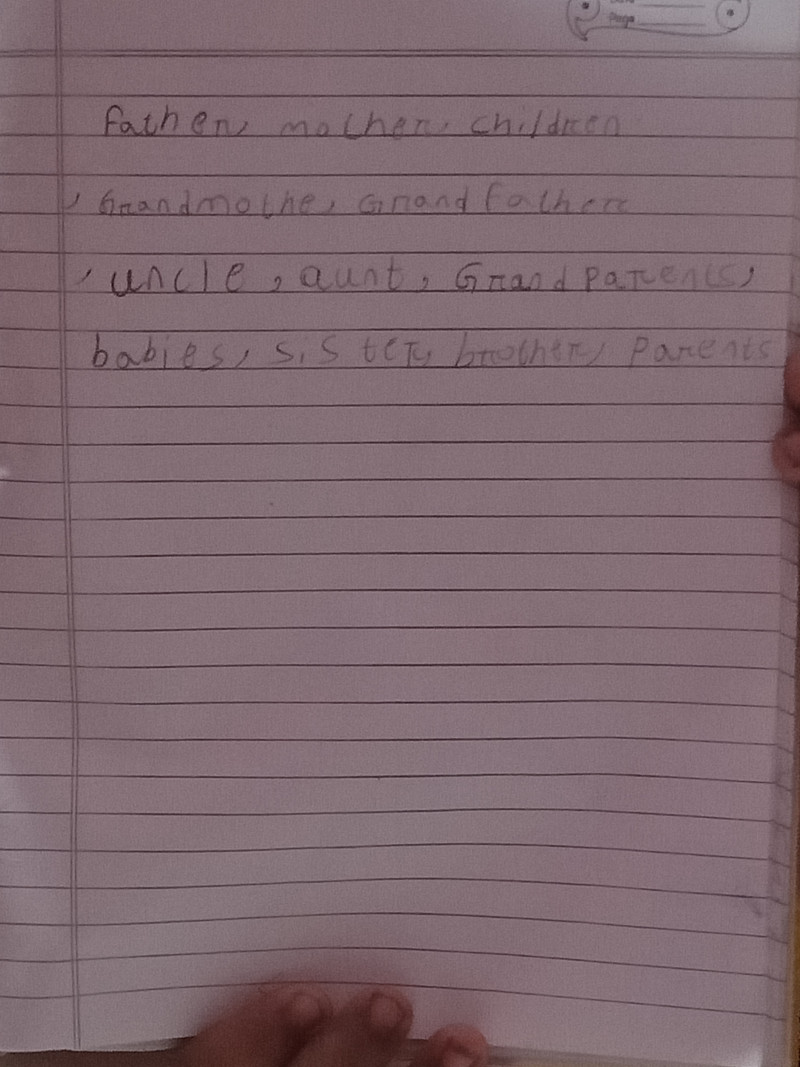 Page
Father, mother, children
, Grandmothe, Grandfather
, uncle, aunt, Grandparents,
babies, sister, brother, Parents